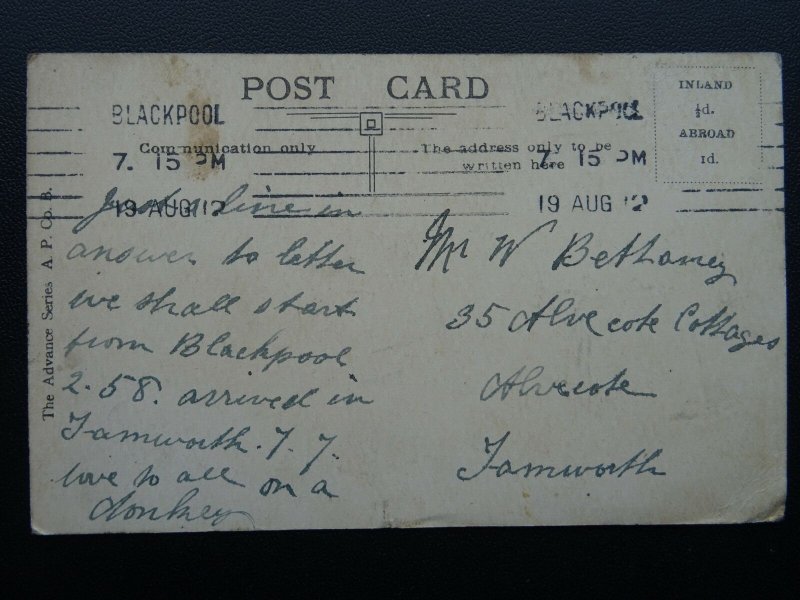 POST CARD
BLACKPOOL
7. 15 PM
19 AUG 12
BLACKPOOL
7. 15 PM
19 AUG 12
INLAND
½d.
ABROAD
1d.
Communication only
The address only to be
written here
The Advance Series A. P. Co. B.
Just a line in
answer to letter
we shall start
from Blackpool
2.58. arrived in
Tamworth. 7.7.
love to all on a
donkey
Mr W Bethaney
35 Alvecote Cottages
Alvecote
Tamworth